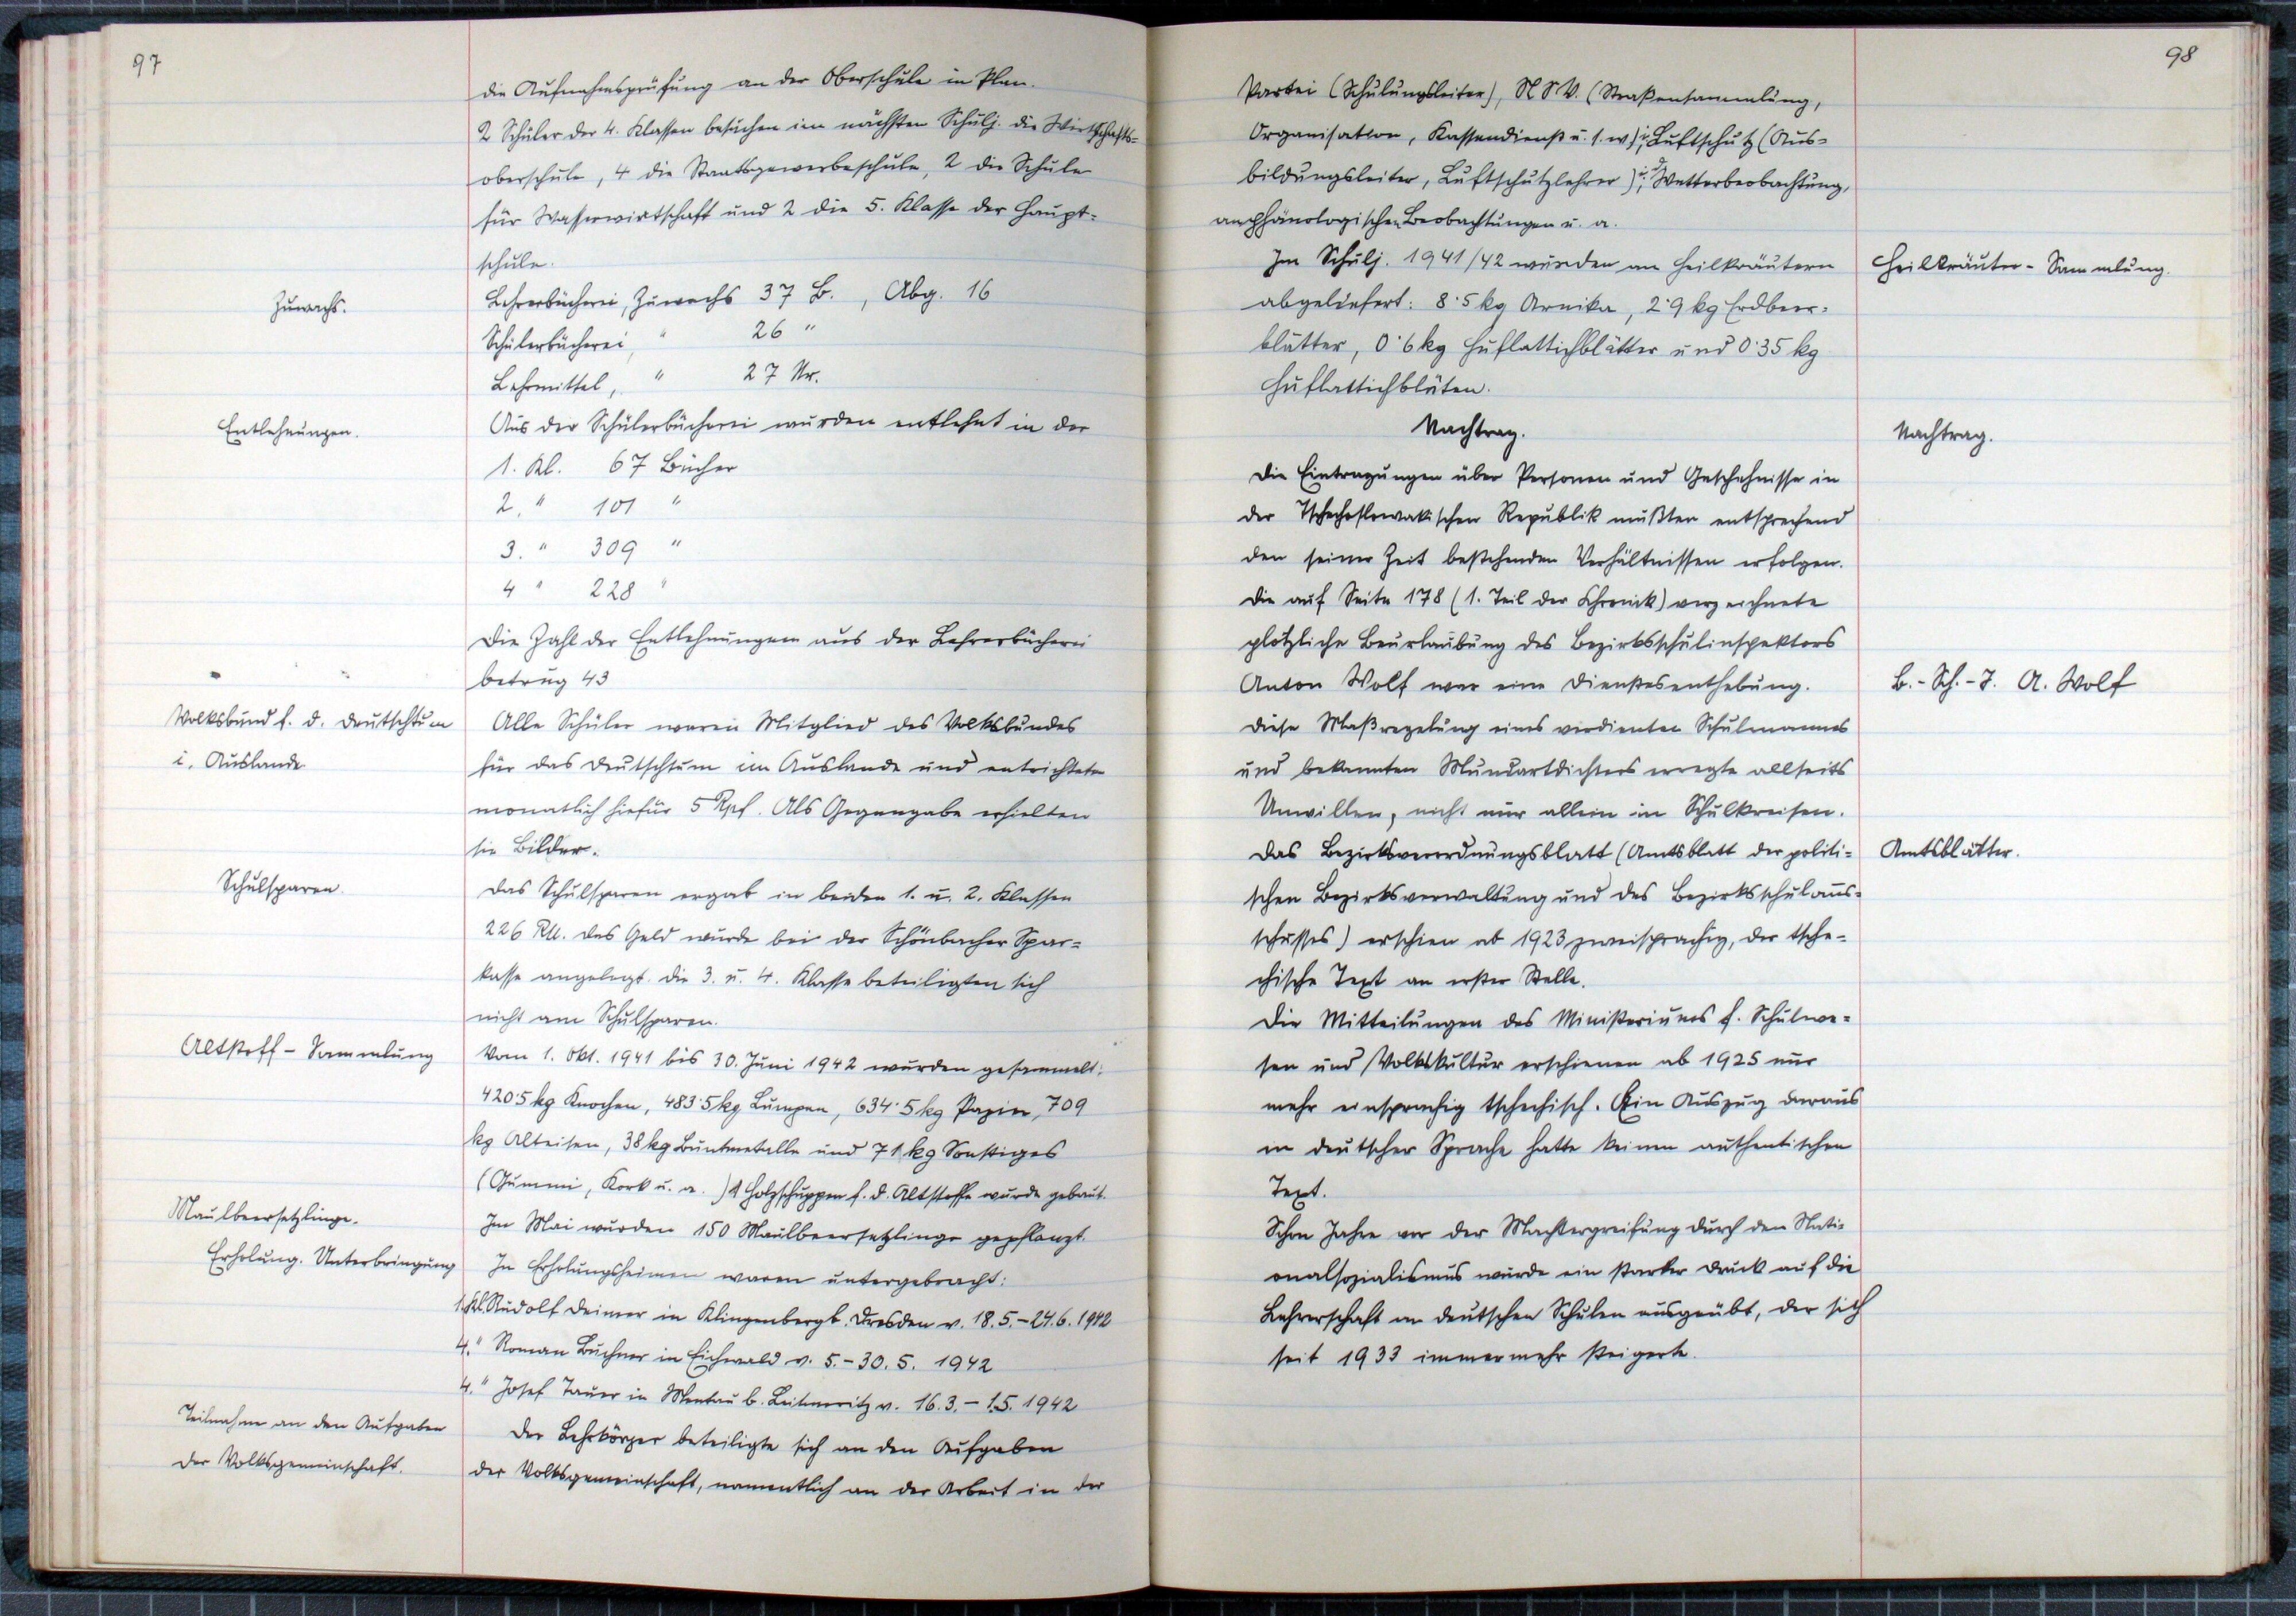 97
die Aufnahmsprüfung an der Oberschule in Plan.
2 Schüler der 4. Klassen besuchen im nächsten Schulj. die Wirtschafts=
oberschule, 4 die Staatsgewerbeschule, 2 die Schule
für Wasserwirtschaft und 2 die 5. Klasse der Haupt=
schule.
Zuwachs.
Lehrerbücherei, Zuwachs 37 B., Abg. 16
Schülerbücherei, " 26 "
Lehrmittel, " 27 Nr.
Entlehnungen.
Aus der Schülerbücherei wurden entlehnt in der
1. Kl. 67 Bücher
2. " 101 "
3. " 309 "
4 " 228 "
Die Zahl der Entlehnungen aus der Lehrerbücherei
betrug 43
Volksbund f. d. Deutschtum
i. Auslande.
Alle Schüler waren Mitglied des Volksbundes
für das Deutschtum im Auslande und entrichteten
monatlich hiefür 5 Rpf. Als Gegengabe erhielten
sie Bilder.
Schulsparen.
Das Schulsparen ergab in beiden 1. u. 2. Klassen
226 RM. Das Geld wurde bei der Schönbacher Spar=
kasse angelegt. Die 3. u. 4. Klasse beteiligten sich
nicht am Schulsparen.
Altstoff - Sammlung
Vom 1. Okt. 1941 bis 30. Juni 1942 wurden gesammelt:
420·5 kg Knochen, 483·5 kg Lumpen, 634·5 kg Papier, 709
kg Alteisen, 38 kg Buntmetalle und 71 kg Sonstiges
(Gummi, Kork u. a.) 1 Holzschuppen f. d. Altstoffe wurde gebaut.
Maulbeersetzlinge.
Im Mai wurden 150 Maulbeersetzlinge gepflanzt.
Erholung. Unterbringung
In Erholungsheimen waren untergebracht:
1. Kl. Rudolf Deimer in Klingenberg b. Dresden v. 18.5.-24.6.1942
4. " Roman Buchner in Eichwald v. 5.-30.5. 1942
4. " Josef Tauer in Mentau b. Leitmeritz v. 16.3.-1.5. 1942
Teilnahme an den Aufgaben
der Volksgemeinschaft.
Der Lehrkörper beteiligte sich an den Aufgaben
der Volksgemeinschaft, namentlich an der Arbeit in der
98
Partei (Schulungsleiter), NSV. (Straßensammlung,
Organisation, Kassendienst u. s. w), i. Luftschutz (Aus=
bildungsleiter, Luftschutzlehrer), i. d. Wetterbeobachtung,
an phänologischen Beobachtungen u. a.
Im Schulj. 1941/42 wurden an Heilkräutern
Heilkräuter - Sammlung.
abgeliefert: 8·5 kg Arnika, 2·9 kg Erdbeer=
blätter, 0·6 kg Huflattichblätter und 0·35 kg
Huflattichblüten.
Nachtrag.
Nachtrag.
Die Eintragungen über Personen und Geschehnisse in
der Tschechoslowakischen Republik mußten entsprechend
den seiner Zeit bestehenden Verhältnissen erfolgen.
Die auf Seite 178 (1. Teil der Chronik) verzeichnete
plötzliche Beurlaubung des Bezirksschulinspektors
Anton Wolf war eine Dienstesenthebung.
B.-Sch.-I. A. Wolf
Diese Maßregelung eines verdienten Schulmannes
und bekannten Mundartdichters erregte allseits
Unwillen, nicht nur allein in Schulkreisen.
Das Bezirksverordnungsblatt (Amtsblatt der politi=
Amtsblätter.
schen Bezirksverwaltung und des Bezirksschulaus=
schusses) erschien ab 1923 zweisprachig, der tsche=
chische Text an erster Stelle.
Die Mitteilungen des Ministeriums f. Schulwe=
sen und Volkskultur erschienen ab 1925 nur
mehr einsprachig tschechisch. Ein Auszug daraus
in deutscher Sprache hatte keinen authentischen
Text.
Schon Jahre vor der Machtergreifung durch den Nati=
onalsozialismus wurde ein starker Druck auf die
Lehrerschaft an deutschen Schulen ausgeübt, der sich
seit 1933 immer mehr steigerte.